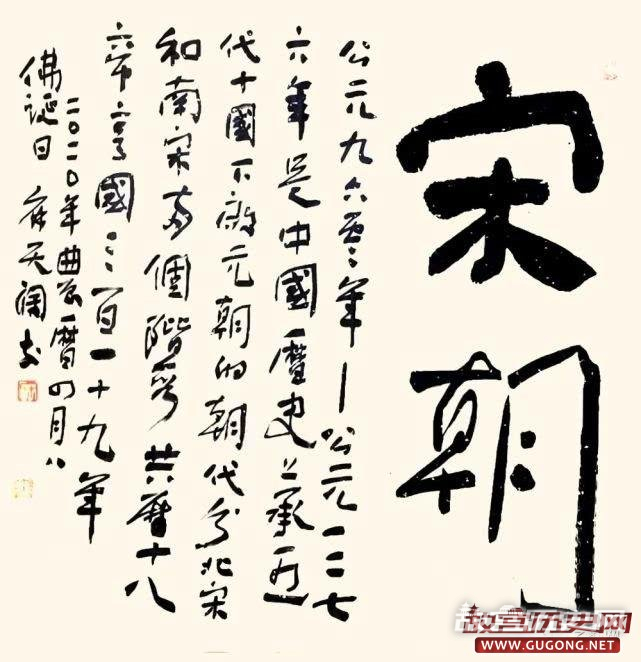 宋朝
公元九六零年—公元一二七
六年是中國曆史上承五
代十國下啟元朝的朝代分北宋
和南宋兩個階段共曆十八
帝享國三百一十九年
二〇二〇年農曆四月八
佛誕日 麻天闊书
故宫历史网
WWW.GUGONG.NET